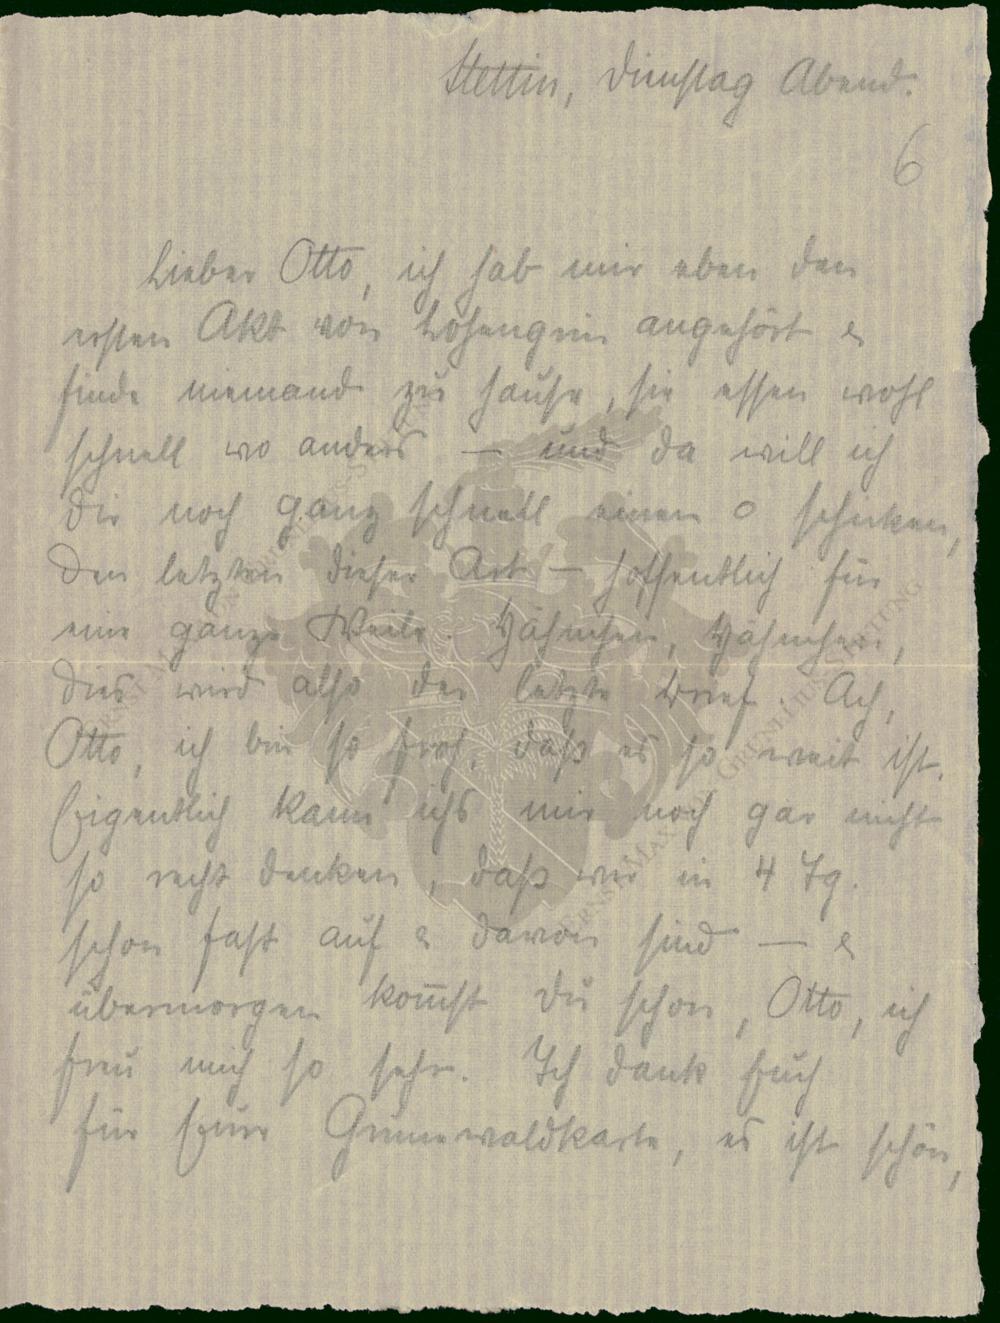 Stettin, Dienstag Abend.
6
Lieber Otto, ich hab mir eben den
ersten Akt von Lohengrin angehört &
finde niemand zu hause, sie essen wohl
schnell wo anders — und da will ich
Dir noch ganz schnell einen o schicken,
den letzten dieser Art — hoffentlich für
eine ganze Weile.
dies wird also der letzte Brief. Ach,
Otto, ich bin so froh, daß es so weit ist.
Eigentlich kann ichs mir noch gar nicht
so recht denken, daß wir in 4 Tg.
schon fast auf & davon sind — &
übermorgen kom̄st Du schon, Otto, ich
freu mich so sehr. Ich dank Euch
für Eure Grunewaldkarte, es ist schön,